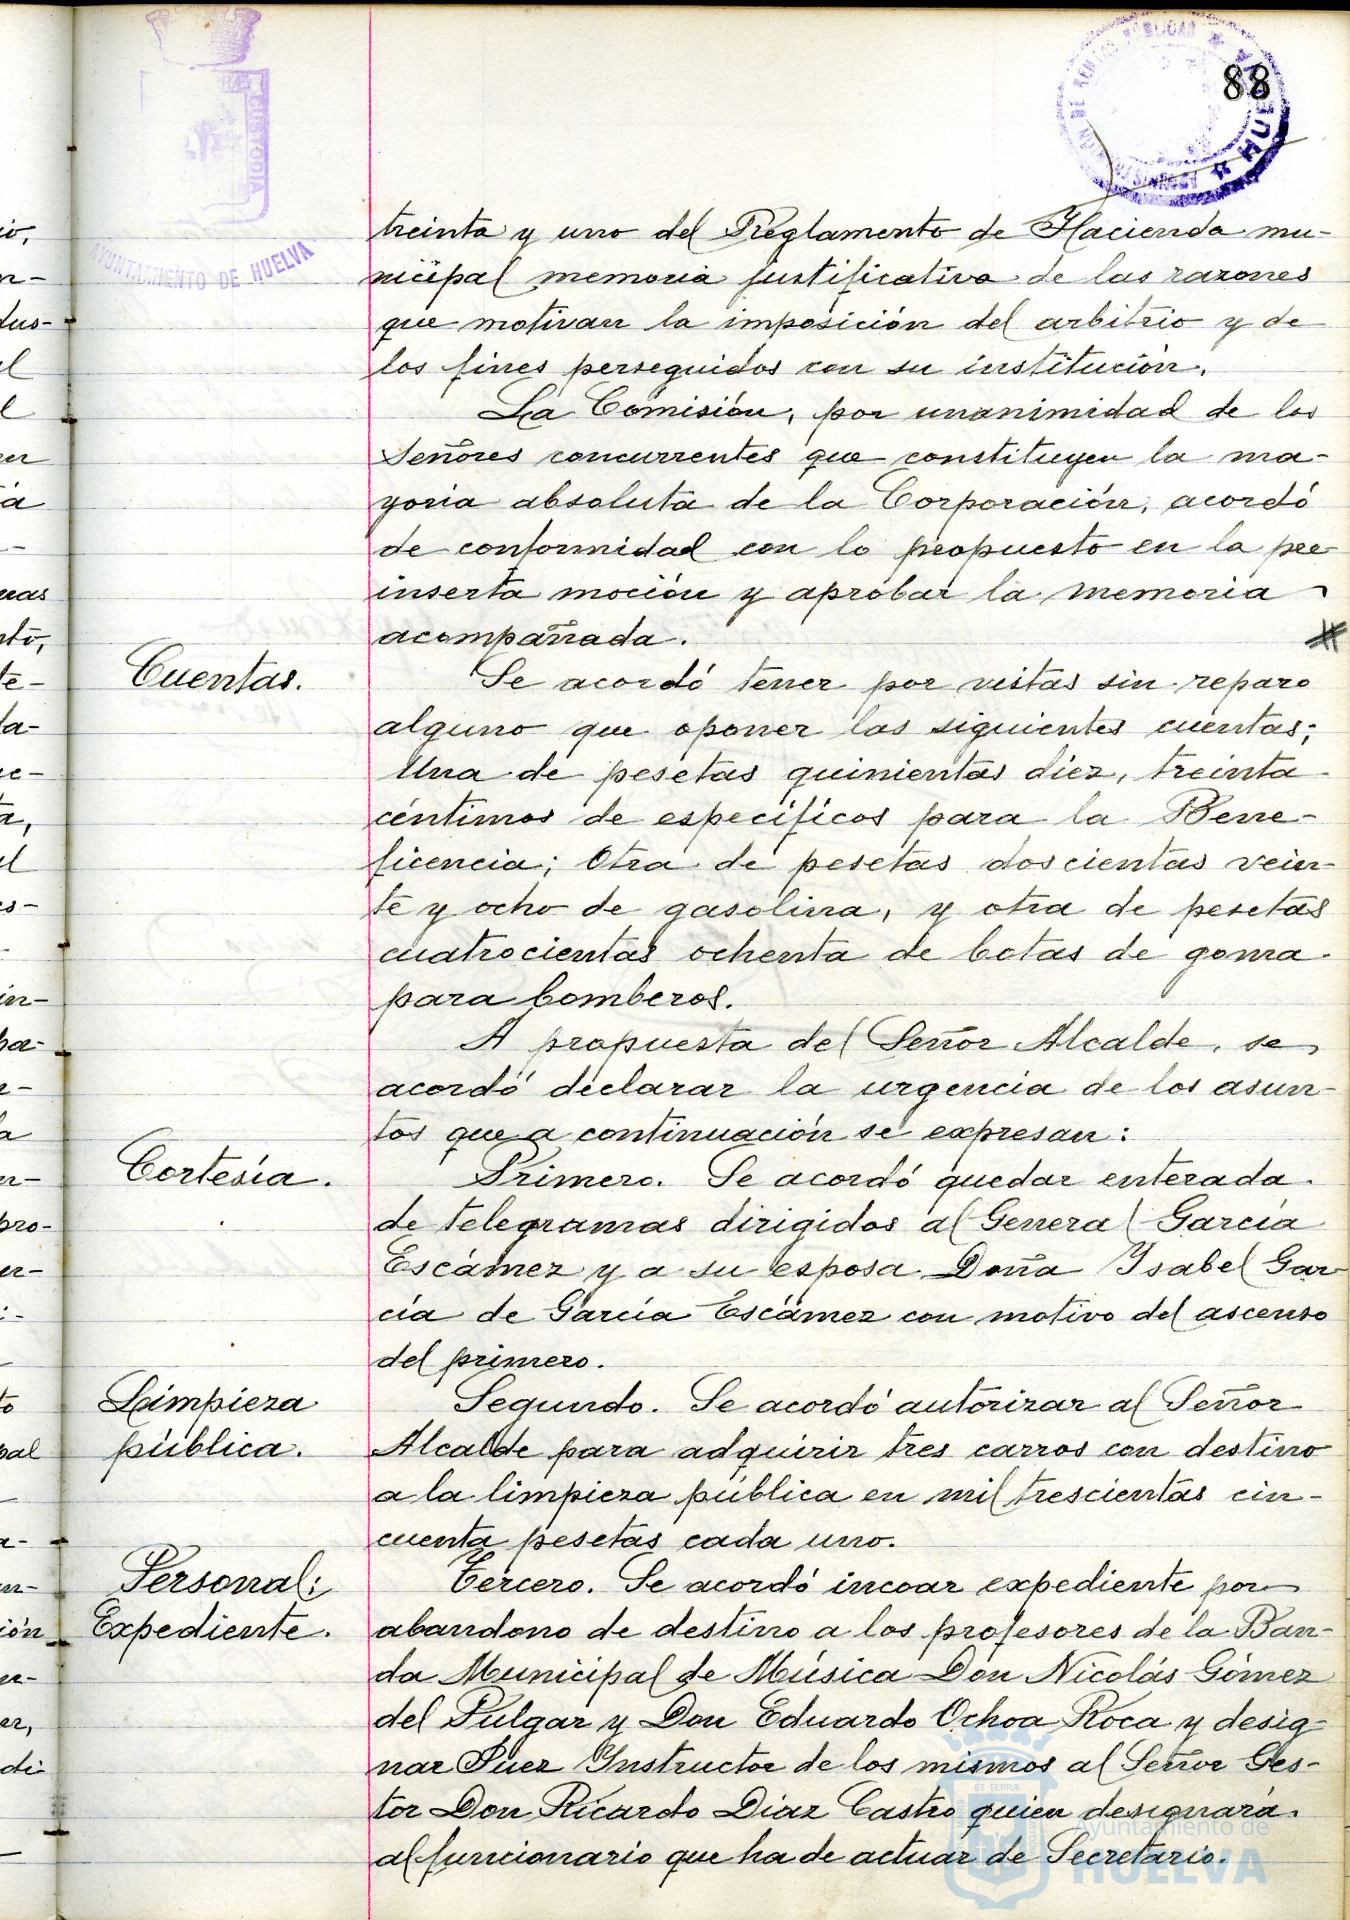 88
CUSTODIA
AYUNTAMIENTO DE HUELVA
HUELVA
treinta y uno del Reglamento de Hacienda mu-
nicipal memoria justificativa de las razones
que motivan la imposición del arbitrio y de
los fines perseguidos con su institución.
La Comisión, por unanimidad de los
Señores concurrentes que constituyen la ma-
yoria absoluta de la Corporación, acordó
de conformidad con lo propuesto en la pre-
inserta moción y aprobar la memoria
acompañada.
Cuentas.
Se acordó tener por vistas sin reparo
alguno que oponer las siguientes cuentas;
Una de pesetas quinientas diez, treinta
céntimos de especificos para la Bene-
ficencia; Otra de pesetas doscientas vein-
te y ocho de gasolina, y otra de pesetas
cuatrocientas ochenta de botas de goma
para bomberos.
A propuesta del Señor Alcalde, se
acordó declarar la urgencia de los asun-
tos que a continuación se expresan:
Cortesía.
Primero. Se acordó quedar enterada
de telegramas dirigidos al General García
Escámez y a su esposa Doña Isabel Gar-
cía de García Escámez con motivo del ascenso
del primero.
Limpieza
pública.
Segundo. Se acordó autorizar al Señor
Alcalde para adquirir tres carros con destino
a la limpieza pública en mil trescientas cin-
cuenta pesetas cada uno.
Personal:
Expediente.
Tercero. Se acordó incoar expediente por
abandono de destino a los profesores de la Ban-
da Municipal de Música Don Nicolás Gómez
del Pulgar y Don Eduardo Ochoa Roca y desig-
nar Juez Instructor de los mismos al Señor Ges-
tor Don Ricardo Diaz Castro quien designará
al funcionario que ha de actuar de Secretario.
Ayuntamiento de
HUELVA